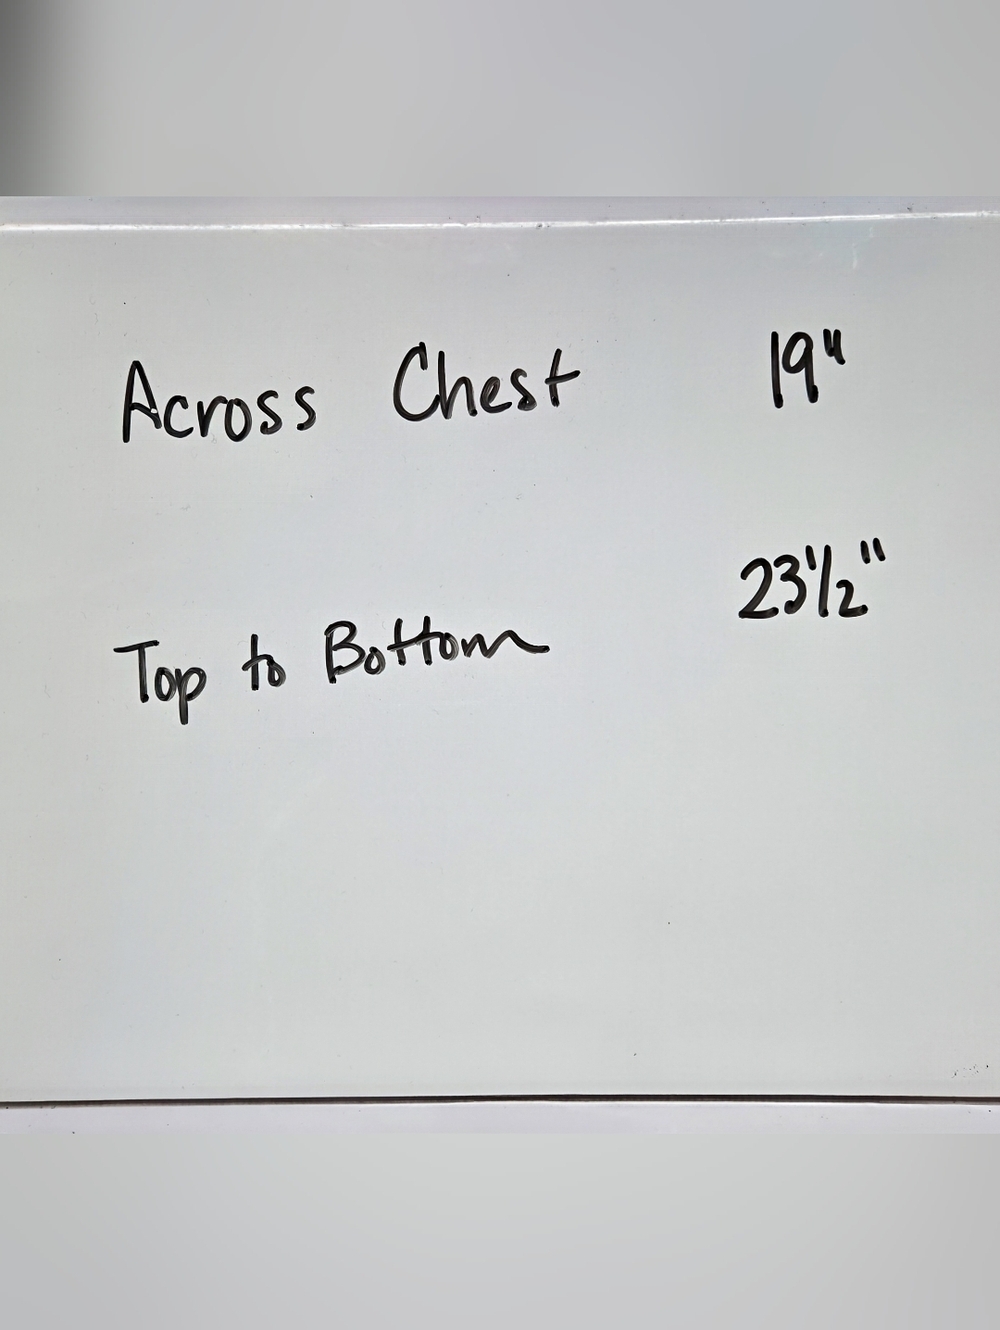 Across Chest 19"
Top to Bottom 23 1/2"